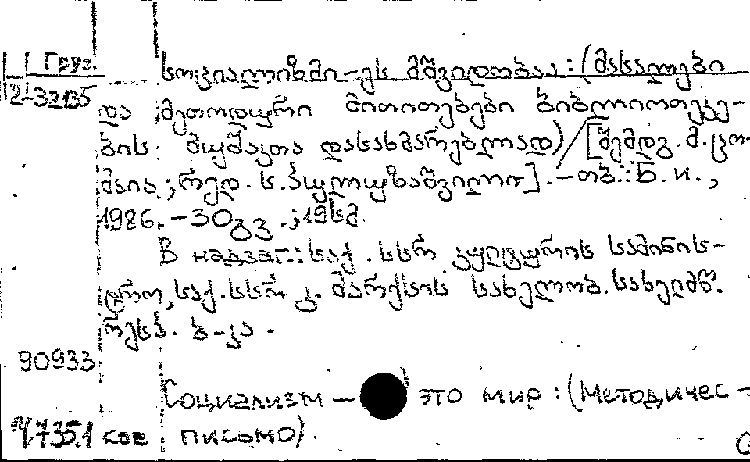 Груз.
სოციალიზმი-ეს მშვიდობაა:(მასალები
2-32135
და მეთოდური მითითებები ბიბლიოთეკე-
ბის მუშაკთა დასახმარებლად)/[შემდგ. მ. ცო-
მაია; რედ. ს. ]. -თბ.: Б. и.,
1986. -30გვ.; 19სმ.
В надзаг.: საქ. სსრ კულტურის სამინის-
ტრო, საქ. სსრ კ. მარქსის სახელობ. სახელმწ.
რესპ. ბ-კა.
90933
Социализм - это мир: (Методичес-
735.1 кое письмо).